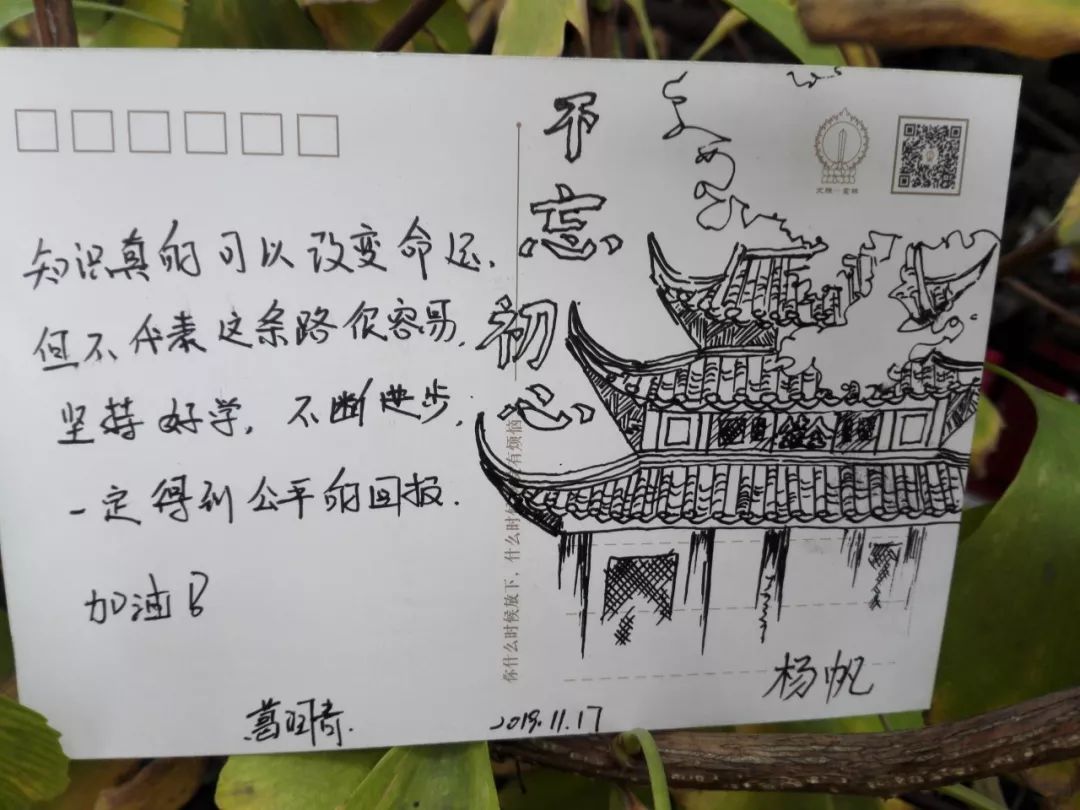 知识真的可以改变命运.
但不代表这条路很容易.
坚持好学,不断进步,
一定得到公平的回报.
加油
2019.11.17
不
忘
初
心
你什么时候放下,什么时候
有烦恼
杨帆